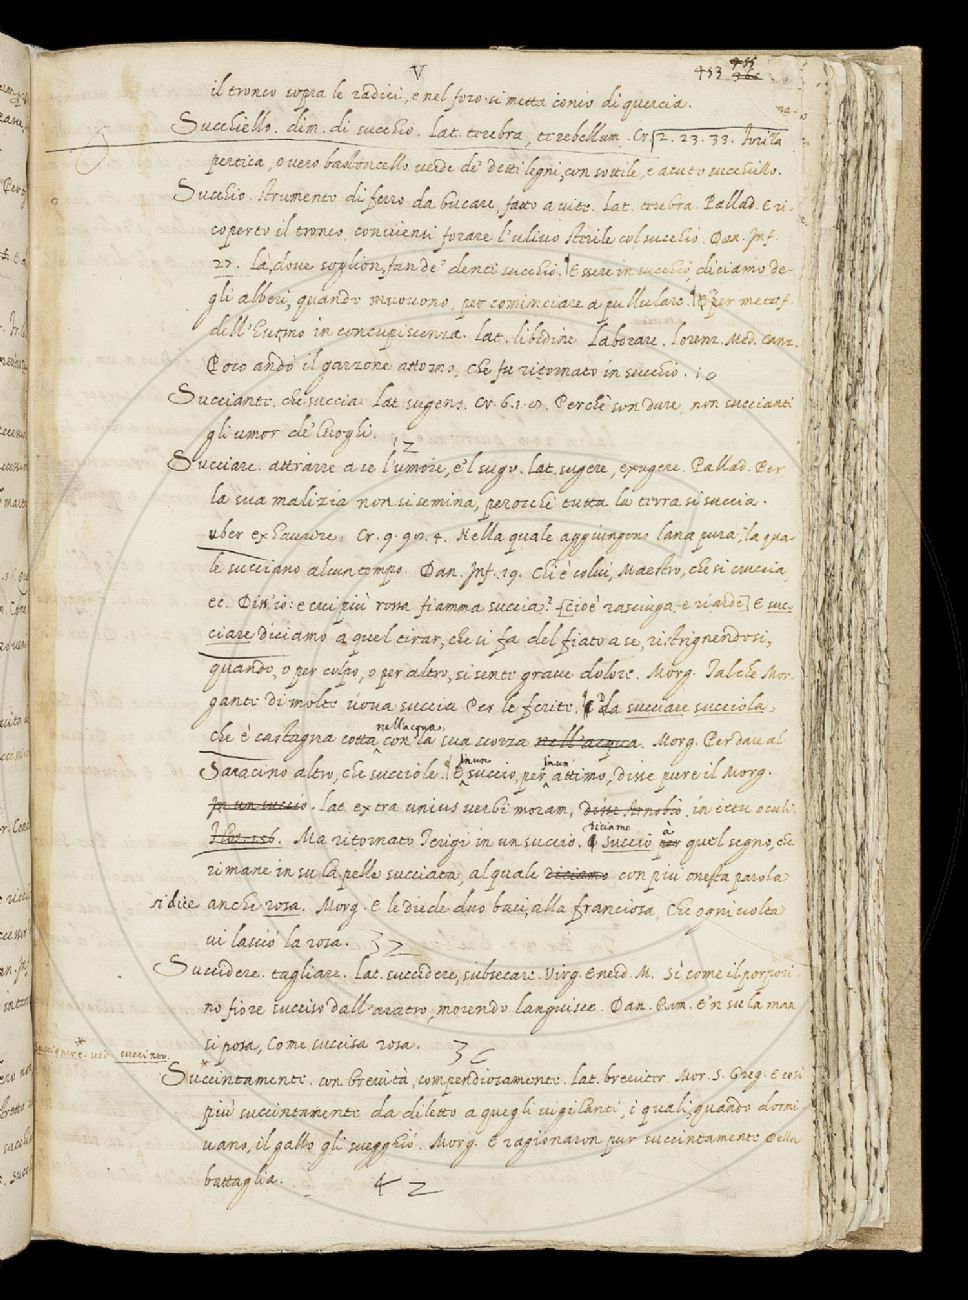 V
453 455 366
il tronco sopra le radici, e nel foro si metta conio di quercia.
Succhiello. dim. di succhio. Lat. terebra, terebellum. Cr. 2. 23. 33. fori la
pertica, o vero bastoncello verde de' detti legni, con sottile, e acuto succhiello.
Succhio. strumento di ferro da bucare, fatto a vite. Lat. terebra. Pallad. E ri-
coperto il tronco, conviensi forare l'ulivo sterile col succhio. Dan. Inf.
27. Là, dove soglion, fan de' denti succhio. Essere in succhio, diciamo de-
gli alberi, quando muovono, per cominciare a pullulare. E Per metaf.
dell'Euomo in concupiscenza. Lat. libidine laborare. Lorenz. Med. canz.
Poco andò il garzone attorno, che fu ritornato in succhio. 10
Succiante. che succia. Lat. sugens. Cr. 6. 1. Perchè son dure, non succianti
gli umor de' luoghi. 12
Succiare. attrarre a se l'umore, e 'l sugo. Lat. sugere, exugere. Pallad. Per
la sua malizia non si semina, perocchè tutta la terra si succia.
uber exhaurire. Cr. 9. 90. 4. Nella quale aggiungono lana pura, la qua-
le succiano alcun tempo. Dan. Inf. 19. Chi è colui, Maestro, che si cruccia,
ec. Diss'io: e cui più rossa fiamma succia? [cioè rasciuga e riarde] E suc-
ciare diciamo a quel tirar, che si fa del fiato a se, ristrignendosi,
quando, o per colpo, o per altro, si sente grave dolore. Morg. Talchè Mor-
gante di molte uova succia Per le ferite. E da succiare succiola,
che è castagna cotta nell'acqua con la sua scorza nell'acqua. Morg. Per dare al
Saracino altro, che succiole. E in un succio, per in un attimo, disse pure il Morg.
In un succio. Lat. extra unius verbi moram, disse Arnobio in ictu oculi.
Flos. 156. Ma ritornato Terigi in un succio. E diciamo succio per a quel segno, che
rimane in su la pelle succiata, al quale diciamo con più onesta parola
si dice anche rosa. Morg. E le diede duo baci, alla franciosa, Che ogni volta
vi lasciò la rosa. 32
Succidere. tagliare. Lat. succidere, subsecare. Virg. Eneid. M. Sì come il porpori-
no fiore succiso dall'aratro, morendo languisce. Dan. Ram. E 'n su la man
si posa, Come succisa rosa. 36
Succignere. ved. succinto.
Succintamente. con brevità, compendiosamente. Lat. breviter. Mor. S. Greg. E così
più succintamente da diletto a quegli vigilanti, i quali, quando dormi-
vano, il gallo gli svegghiò. Morg. E ragionaron pur succintamente Della
battaglia. 42